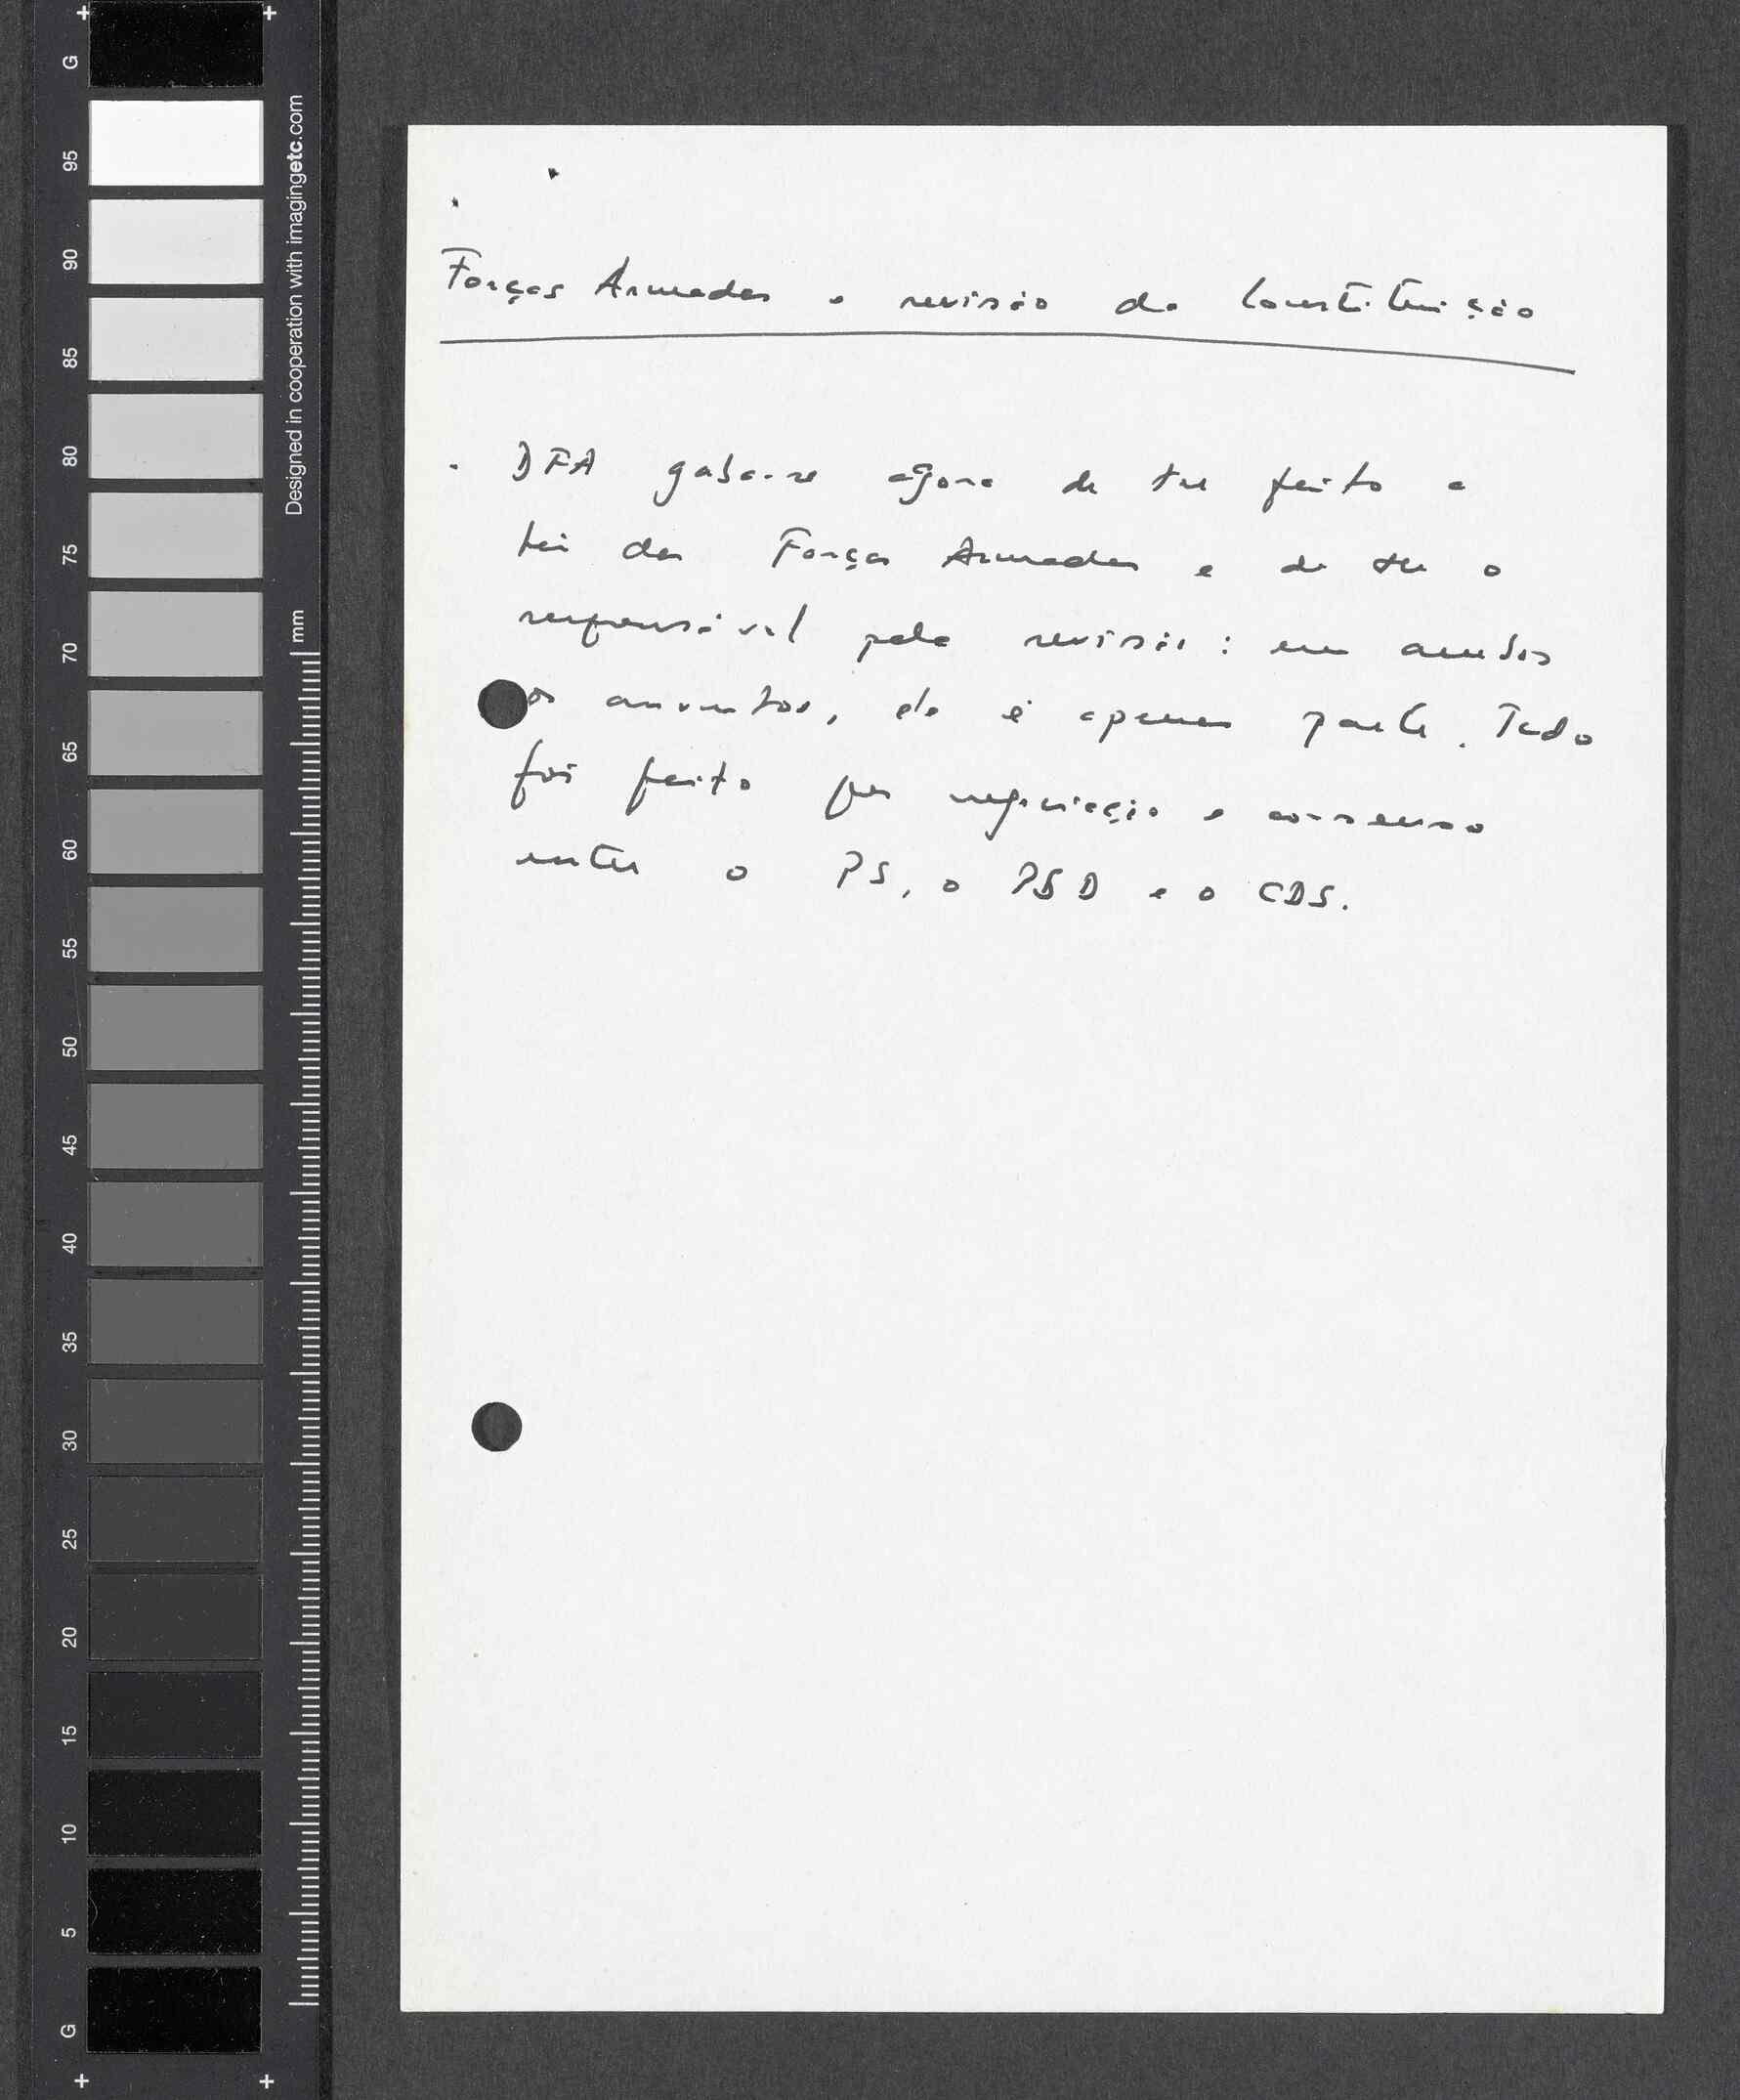 Forças Armadas e revisão da Constituição
. DFA gaba-se agora de ter feito a
Lei das Forças Armadas e de ser o
responsável pela revisão: em ambos
os assuntos, ele é apenas parte. Tudo
foi feito por negociação e consenso
entre o PS, o PSD e o CDS.
G
95
90
85
80
75
70
65
60
55
50
45
40
35
30
25
20
15
10
5
G
Designed in cooperation with imagingetc.com
mm